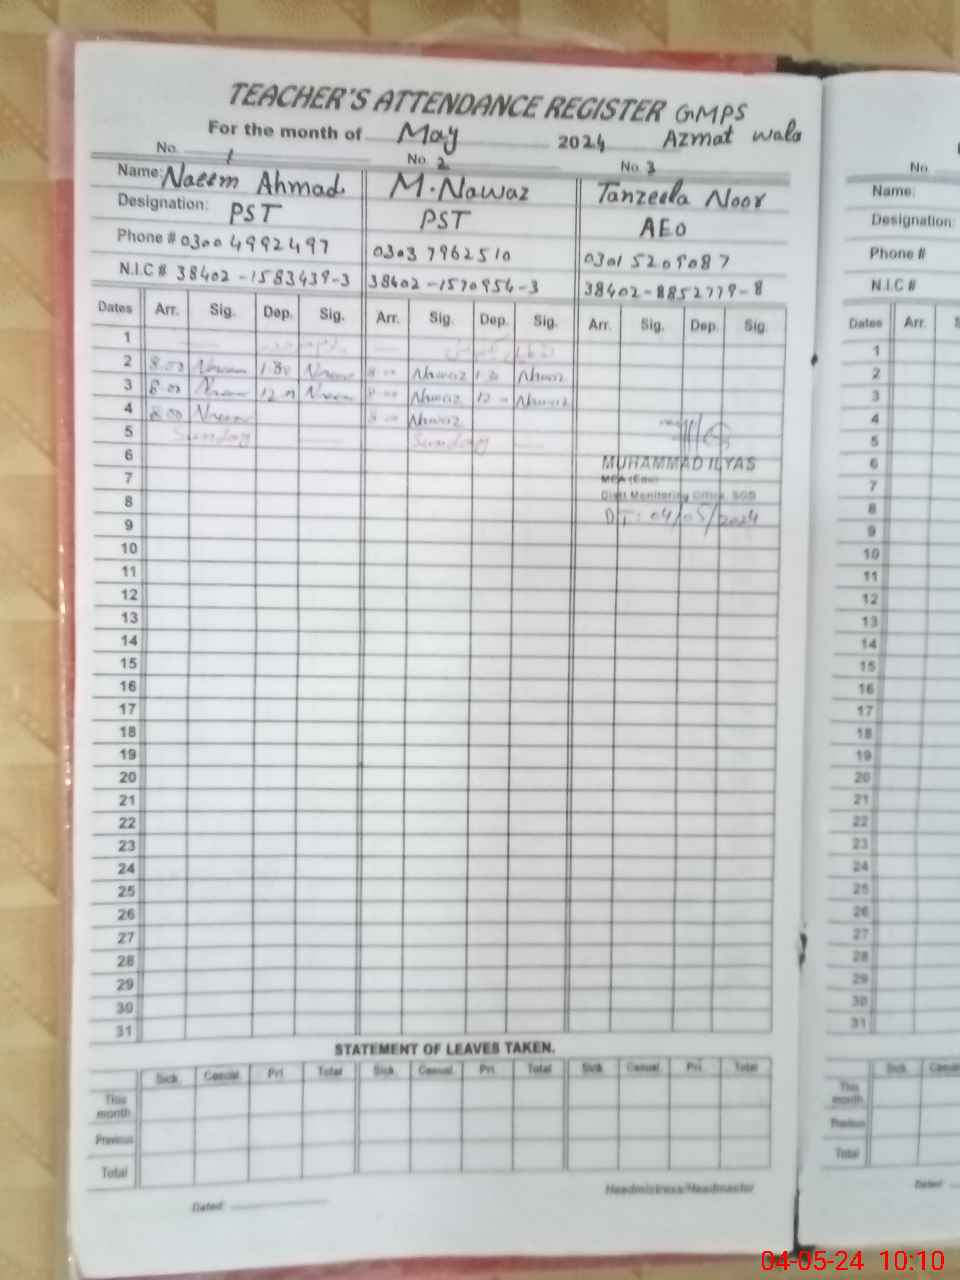 TEACHER'S ATTENDANCE REGISTER GMPS
For the month of May 2024 Azmat wala
No. 1 No. 2 No. 3
Name: Naeem Ahmad M. Nawaz Tanzeela Noor
Designation: PST PST AEO
Phone # 0300 4992497 0303 7962510 0301 5209087
N.I.C # 38402-1583439-3 38402-1570954-3 38402-8852779-8
Dates Arr. Sig. Dep. Sig. Arr. Sig. Dep. Sig. Arr. Sig. Dep. Sig.
1
2 8.00 1.30 8.00 Nawaz 1.30 Nawaz
3 8.00 12.00 8.00 Nawaz 12.00 Nawaz
4 8.00 8.00 Nawaz
5 Sunday Sunday
6 MUHAMMAD ILYAS
7 MEA
8 Distt Monitoring Office, SGD
9 DT: 04/05/2024
10
11
12
13
14
15
16
17
18
19
20
21
22
23
24
25
26
27
28
29
30
31
STATEMENT OF LEAVES TAKEN.
Sick Casual Pri Total Sick Casual Pri Total Sick Casual Pri Total
This month
Previous
Total
Headmistress/Headmaster
Dated:
No.
Name:
Designation:
Phone #
N.I.C #
Dates Arr.
1
2
3
4
5
6
7
8
9
10
11
12
13
14
15
16
17
18
19
20
21
22
23
24
25
26
27
28
29
30
31
Sick
This month
Previous
Total
Dated
04-05-24 10:10